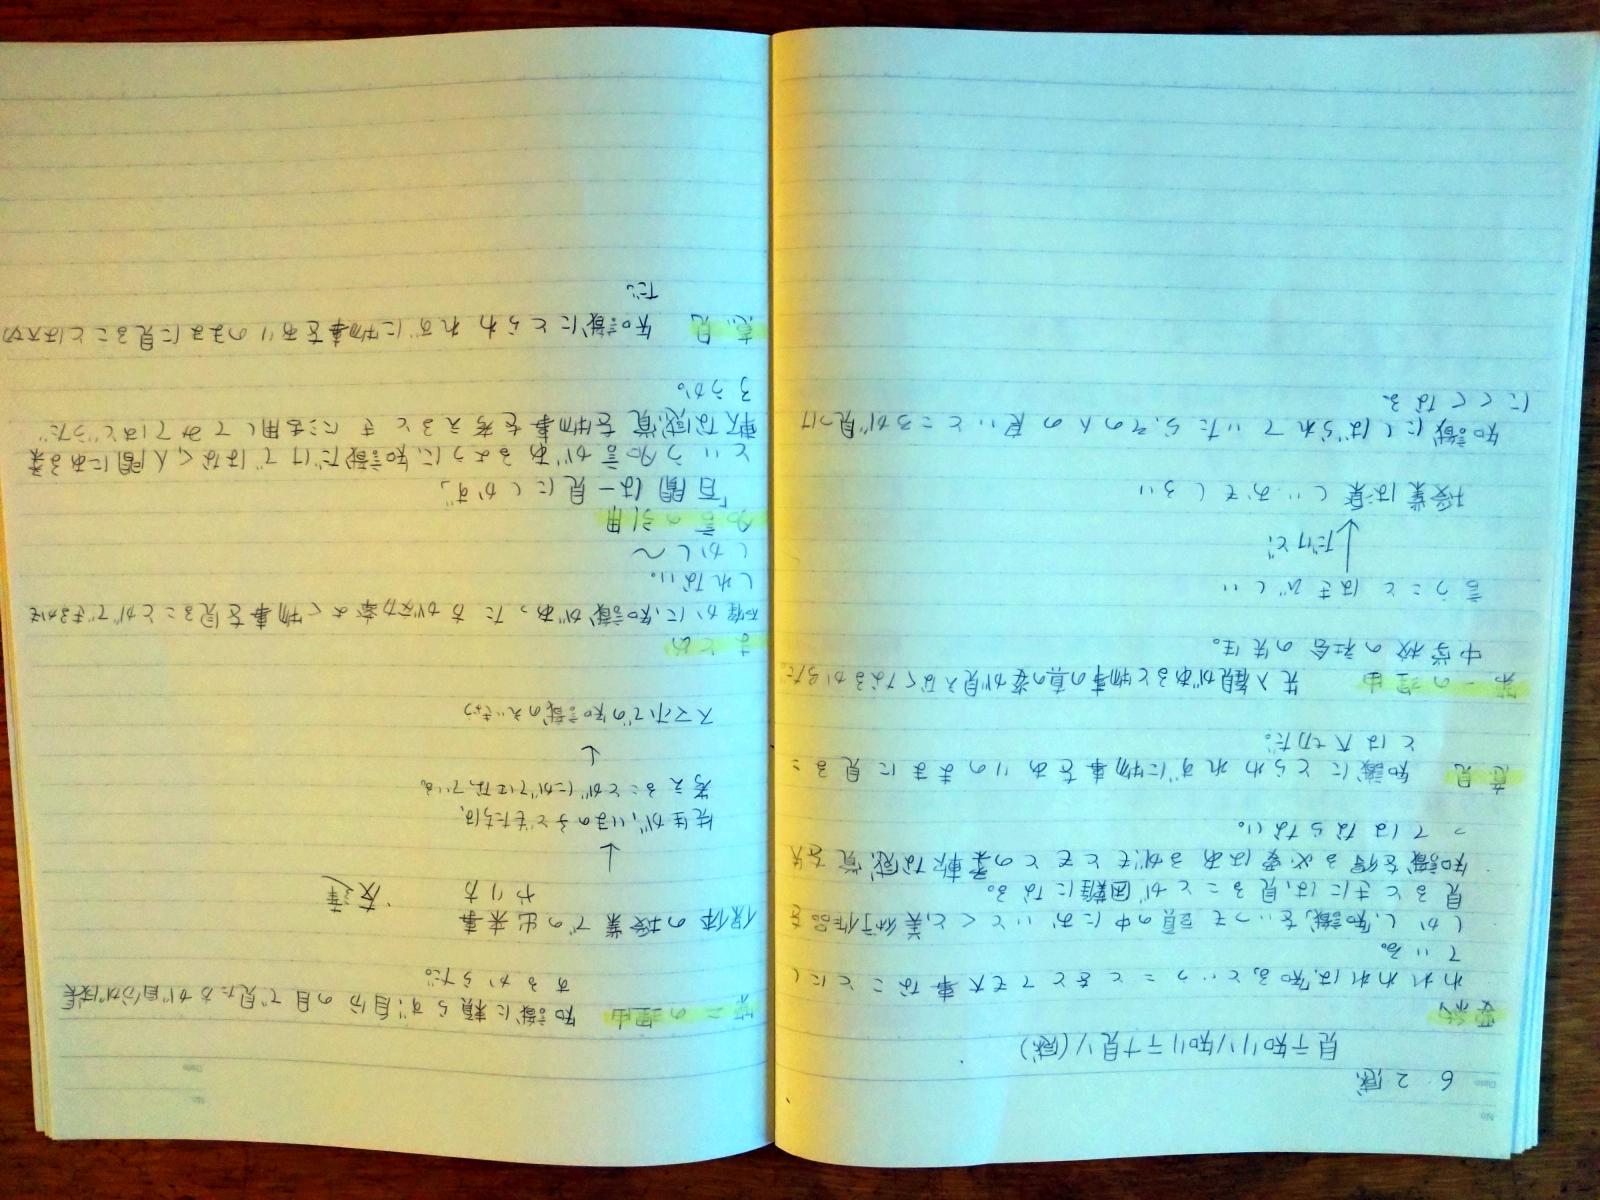 62感
見テ知リソ知リテナ見ソ(感)
要約
われわれは、知る、ということをとても大事なことにし
ている。
しかし、知識を、いつも頭の中においとくと、美術作品を
見るときには、見ることが困難になる。
知識を得る必要はあるが、もともとの柔軟な感覚を失
ってはならない。
意見 知識にとらわれずに物事をありのままに見るこ
とは大切だ。
第一の理由 先入観があると物事の真の姿が見えなくなるからだ。
中学校の社会の先生。
言うことはきびしい
↓だけど
授業は楽しいおもしろい
知識にしばられていたら、その人の良いところが見つけ
にくくなる
第二の理由 知識に頼らず、自分の目で見た方が自分が成長
するからだ。
保体の授業での出来事
やり方 友達
↓
先生が、いまの子どもたちは、
考えることがにがてになっている。
↓
スマホでの知識のえいきょう
まとめ
確かに、知識があった方が効率よく物事を見ることができるかも
しれない。
しかし〜
名言の引用
「百聞は一見にしかず」
という名言があるように、知識だけではなく、人間にある柔
軟な感覚を物事を考えるときに活用してみてはどうだ
ろうか。
意見 知識にとらわれずに物事をありのままに見ることは大切
だ。